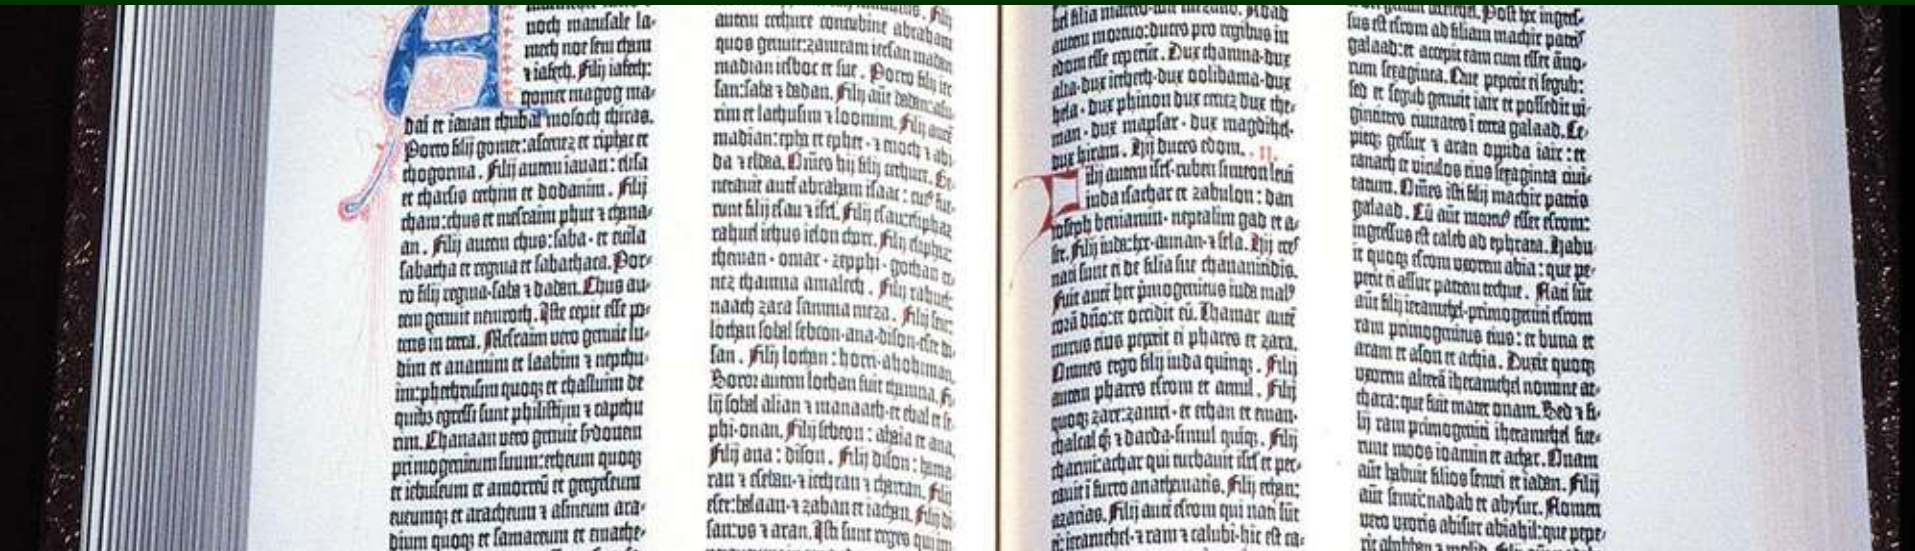 noch matusale la-
mech noe sem cham
⁊ iafeth. Filij iafeth:
gomer magog ma-
dai et iauan thubal mosoch thiras.
Porro filij gomer: asenez et riphat et
thogorma. Filij autem iauan: elisa
et tharsis cethim et dodanim. Filij
cham: chus et mesraim phut ⁊ chana-
an. Filij autem chus: saba · et euila
sabatha et regma et sabathaca. Por-
ro filij regma · saba ⁊ dadan. Chus au-
tem genuit nemroth. Iste cepit esse po-
tens in terra. Mesraim vero genuit lu-
dim et anamim et laabim ⁊ nepthu-
im: phethrusim quoqꝫ et chasluim de
quibꝫ egressi sunt philistijm ⁊ capthu
rim. Chanaan vero genuit sydonem
primogenitum suum: etheum quoqꝫ
et iebuseum et amorreū et gergeseum
eueumqꝫ et aracheum ⁊ asineum ara-
dium quoqꝫ et samareum et emathe-
autem cethure concubine abraham
quos genuit: zamram iecsan madan
madian iesboc et sue. Porro filij iec
san: saba ⁊ dadan. Filij aūt dadan: assu
rim et lathusim ⁊ loomim. Filij autē
madian: epha et epher · ⁊ enoch ⁊ abi
da ⁊ eldaa. Omēs hij filij cethure. Ge-
nerauit autē abraham isaac: cuiꝰ fue-
runt filij esau ⁊ isrl. Filij esau: eliphaz
rahuel iehus ielon chore. Filij eliphaz
theman · omar · zepphi · gothan ce-
nez thamna amalech. Filij rahuel:
naath zara samma meza. Filij seir:
lothan sobal sebeon · ana · dison · eser di-
san. Filij lothan: horri · ahohiman.
Soror autem lothan fuit thamna. Fi-
lij sobal alian ⁊ manaath · et ebal et se-
phi · onan. Filij sebeon: ahaia et ana.
Filij ana: dison. Filij dison: hama
ran ⁊ eseban · ⁊ iethran ⁊ charran. Filij
eser: balaan · ⁊ zaban et iachan. Filij di
san: vs ⁊ aran. Isti sunt reges qui im
autem mortuo: duces pro regibus in
edom esse ceperūt. Dux thamna · dux
alua · dux ietheth · dux oolibama · dux
hela · dux phinon dux cenez dux the-
man · dux mapsar · dux magdihel ·
dux hiram. Hij duces edom. II.
Filij autem isrl · ruben simeon leui
iuda isachar et zabulon: dan
ioseph beniamin · neptalim gad et a-
ser. Filij iuda: her · aunan · ⁊ sela. Hij tres
nati sunt ei de filia sue chananitidis.
Fuit autē her pmogenitus iuda malꝰ
corā dño: et occidit eū. Thamar autē
nurus eius peperit ei phares et zara.
Omnes ergo filij iuda quinqꝫ. Filij
autem phares esrom et amul. Filij
quoqꝫ zare: zamri · et ethan et eman ·
chalcal qꝫ ⁊ darda · simul quīqꝫ. Filij
charmi: achar qui turbauit isrl et pec-
cauit ī furto anathematis. Filij ethan:
azarias. Filij autē esrom qui nati sūt
ei: ieramehel · ⁊ ram ⁊ calubi · hic est ca-
sus est esrom ad filiam machir patrꝭ
galaad: et accepit eam cum esset āno-
rum sexaginta. Que peperit ei segub:
sed et segub genuit iair et possedit vi-
ginti tres ciuitates ī terra galaad. Ce-
pitqꝫ gessur ⁊ aran oppida iair: et
canath et viculos eius sexaginta ciui-
tatum. Omēs isti filij machir patris
galaad. Cū aūt mortuꝰ esset esrom:
ingressus est caleb ad ephrata. Habu-
it quoqꝫ esrom vxorem abia: que pe-
perit ei assur patrem techue. Nati sūt
aūt filij ieramehel · primogeniti esrom
ram primogenitus eius: et buna et
aram et asom et achia. Duxit quoqꝫ
vxorem alterā iheramehel nomine at-
thara: que fuit mater onam. Sed ⁊ fi-
lij ram primogeniti iheramehel fue-
runt moos iaamin et achar. Onam
aūt habuit filios semei et iadan. Filij
aūt semei: nadab et abysur. Nomen
vero vxoris abisur abiahil: que pepe-